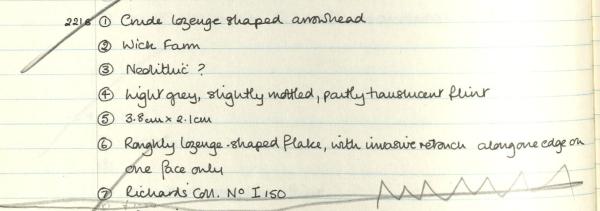 2216 ① Crude lozenge shaped arrowhead
② Wick Farm
③ Neolithic ?
④ Light grey, slightly mottled, partly translucent flint
⑤ 3.8cm x 2.1cm
⑥ Roughly lozenge-shaped flake, with invasive retouch along one edge on
one face only
⑦ Richards' Coll. Nº I 150